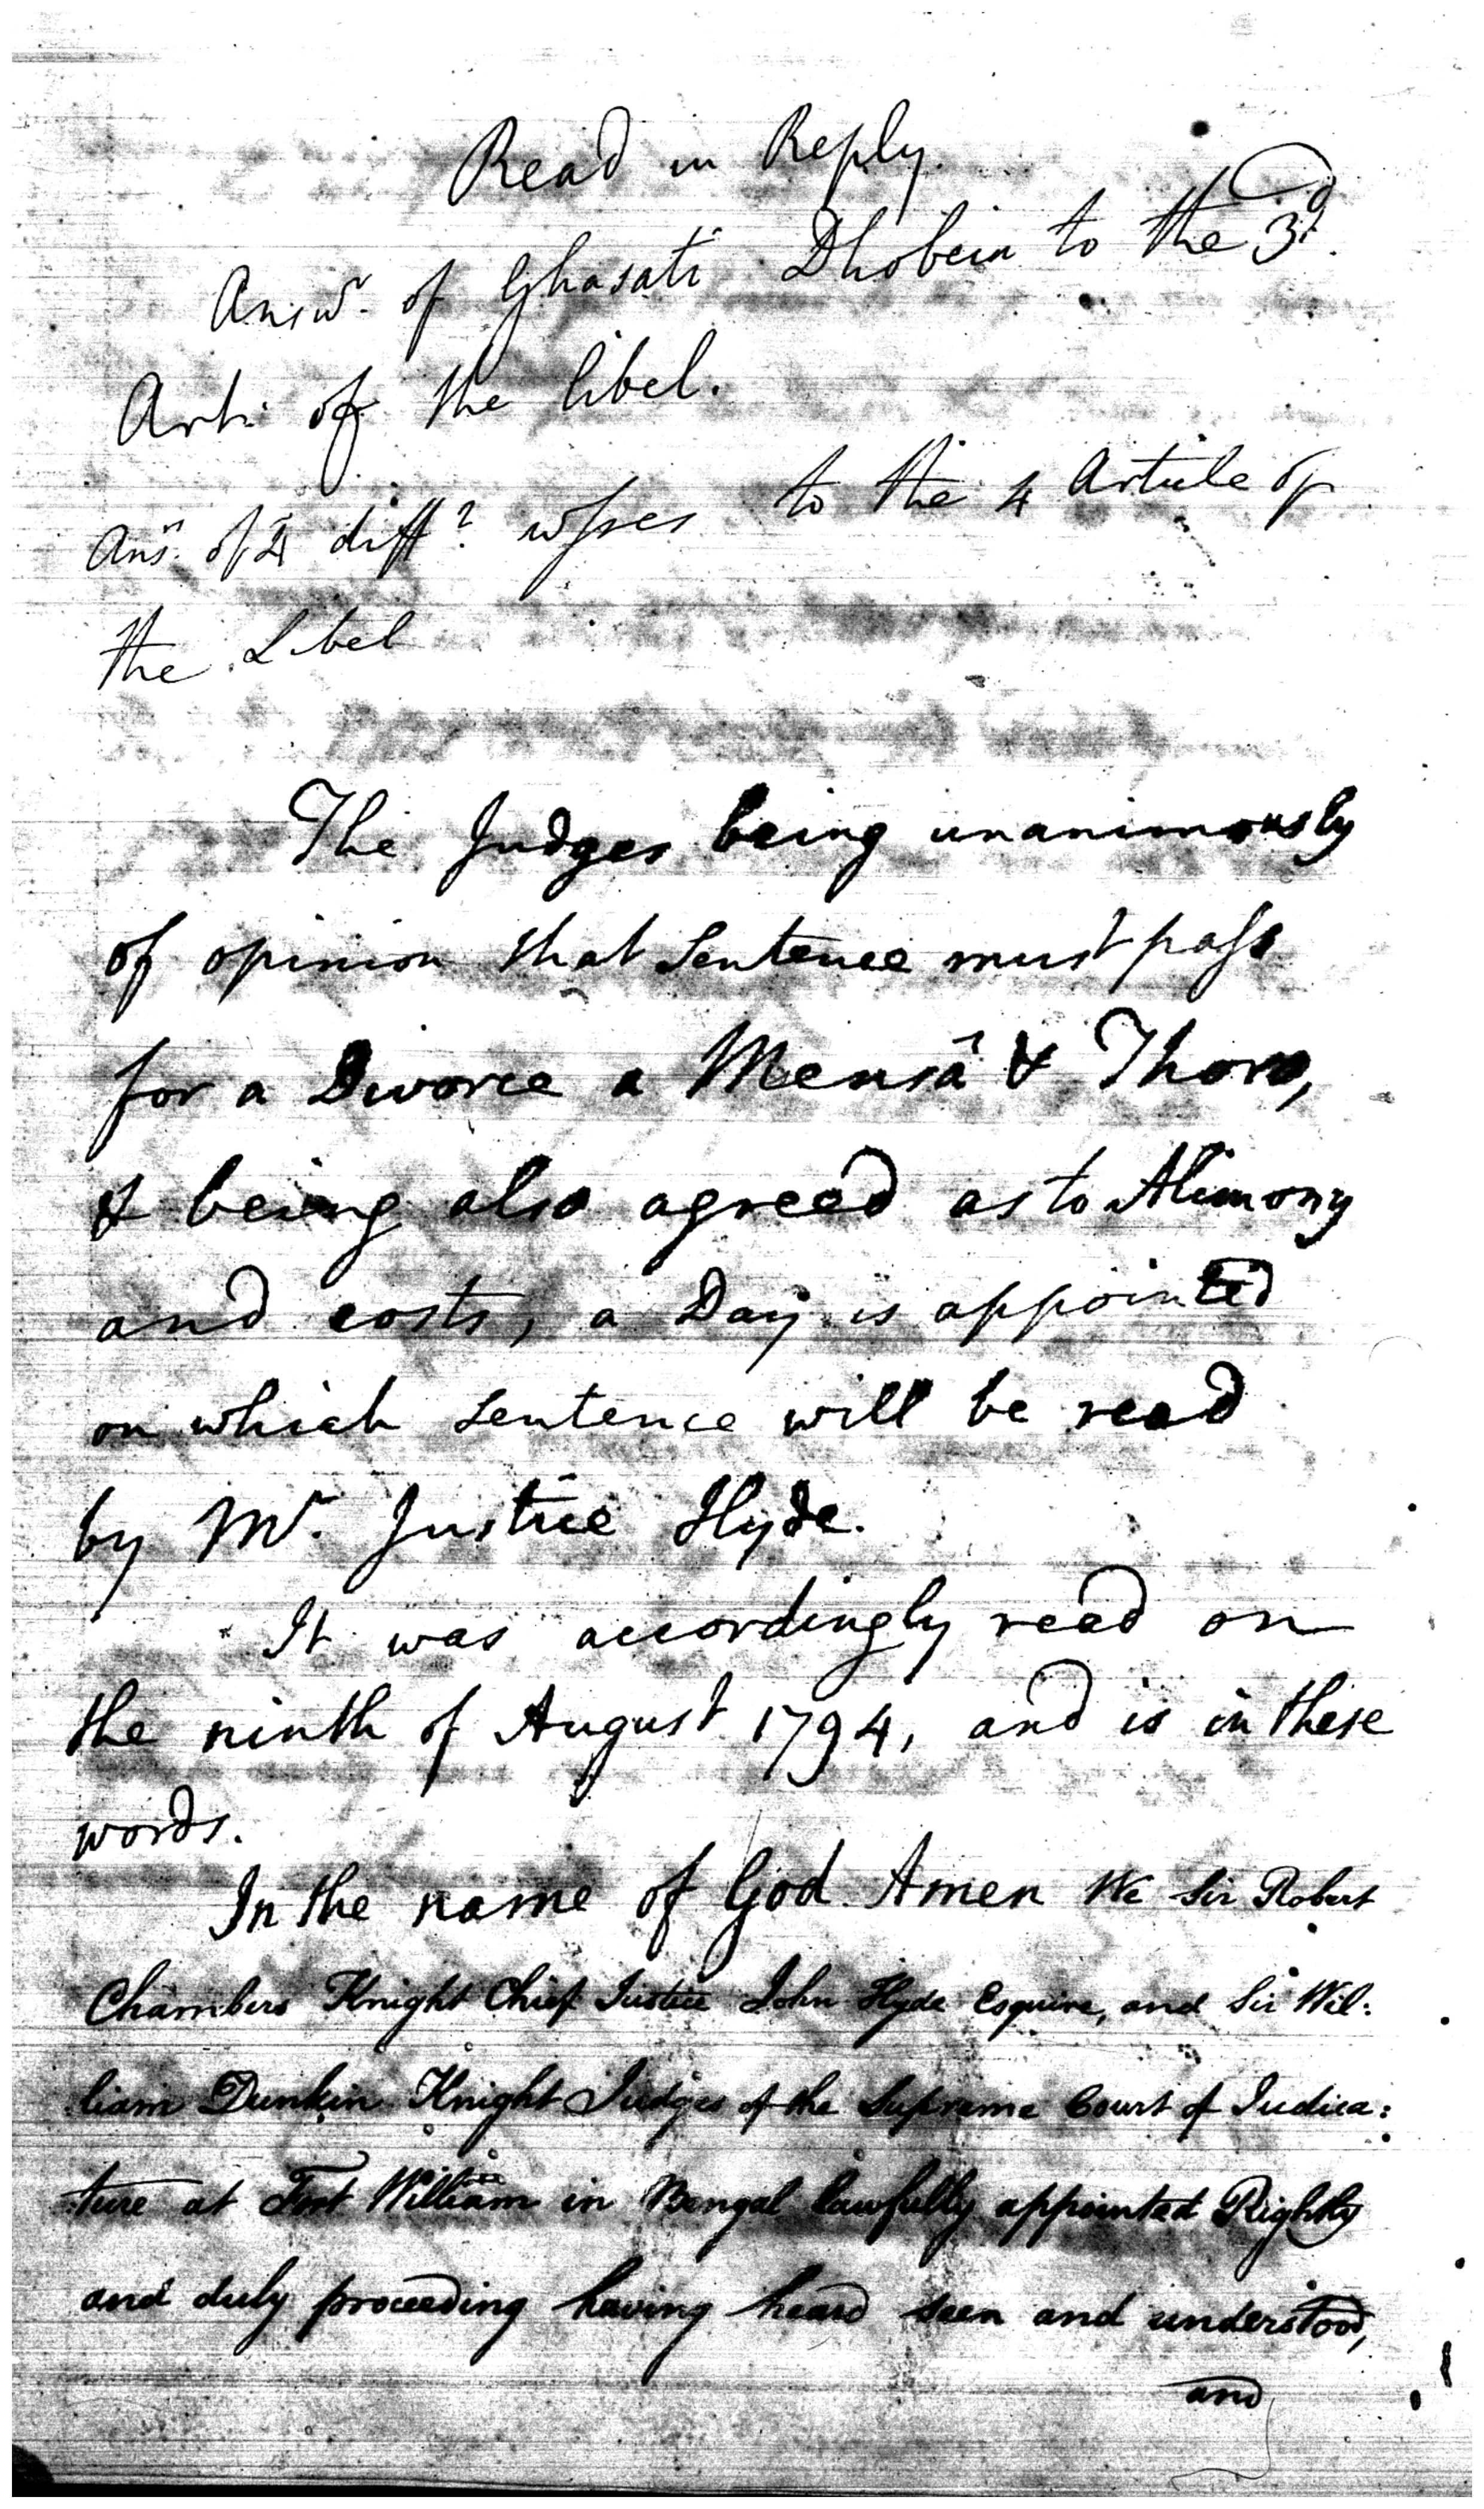 Read in Reply.
Answr. of Ghasati Dhobein to the 3d.
Art: of the libel.
Ansr. of 4 difft. wsses to the 4 Article of
the Libel
The Judges being unanimously
of opinion that Sentence must pass
for a Divorce a Mensâ & Thoro,
& being also agreed as to Alimony
and costs, a Day is appointed
on which Sentence will be read
by Mr. Justice Hyde.
It was accordingly read on
the ninth of August 1794, and is in these
words.
In the name of God Amen We Sir Robert
Chambers Knight Chief Justice John Hyde Esquire, and Sir Wil:
liam Dunkin Knight Judges of the Supreme Court of Judica:
ture at Fort William in Bengal lawfully appointed Rightly
and duly proceeding having heard seen and understood,
and